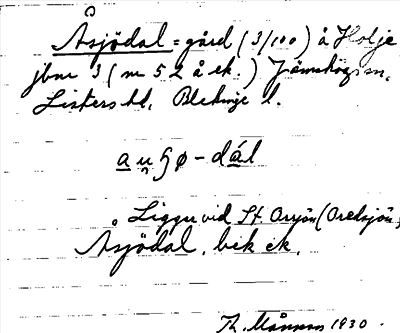 Å
Åsjödal = gård (3/100) å Holje
jbnr 3 (nr 52 å ek.) Jämshögs sn,
Listers hd, Blekinge l.
a u̯ ʃ ø - dál
Ligger vid St. Orsjön (Oredsjön)
Åsjödal, bek ek.
1930.